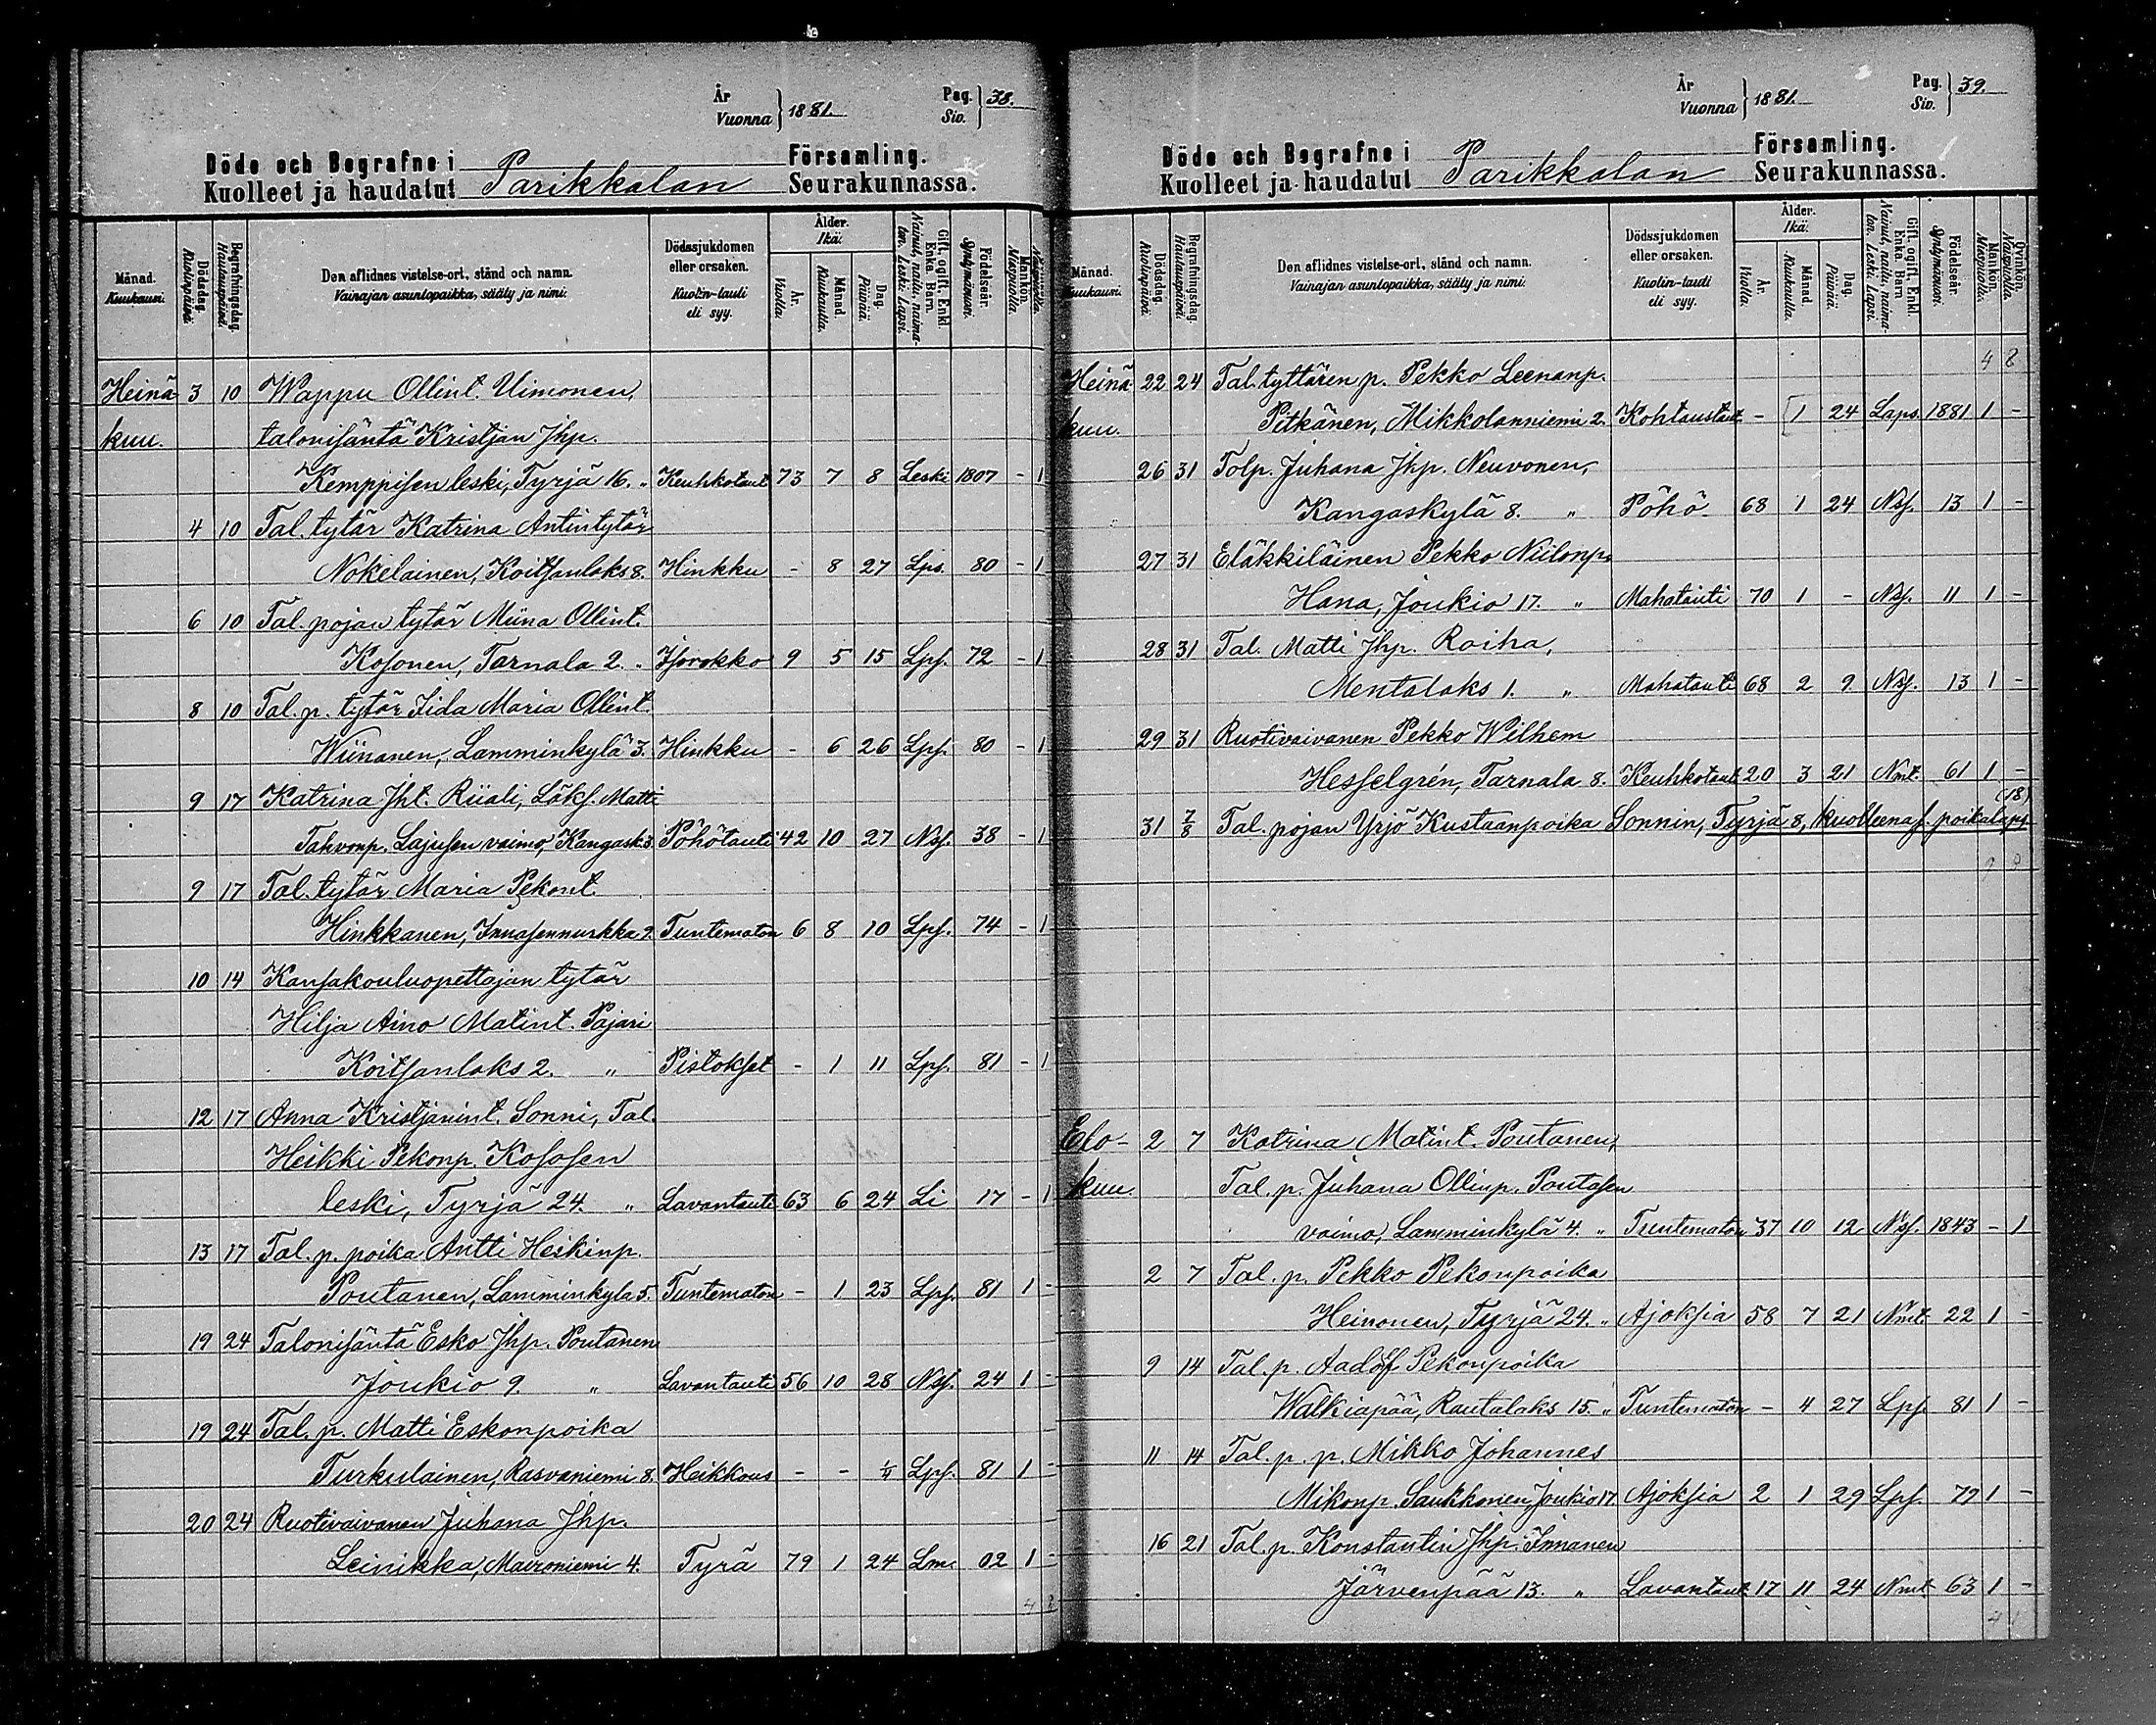 År
Vuonna } 1881. Pag.
Siv. } 38.
Döde och Begrafne i Parikkalan Församling.
Kuolleet ja haudatut Seurakunnassa.
Månad. Kuukausi. Dödsdag. Kuolinpäivä. Begrafningsdag. Hautauspäivä. Den aflidnes vistelse-ort, stånd och namn. Vainajan asuntopaikka, sääty ja nimi. Dödssjukdomen eller orsaken. Kuolin-tauti eli syy. Ålder. Ikä. År. Vuotta. Månad. Kuukautta. Dag. Päivää. Gift, ogift, Enkl. Enka, Barn. Nainut, naitu, naimaton, Leski, Lapsi. Födelseår. Syntymävuosi. Mankön. Miespuolta.
Heinä- 3 10 Wappu Ollint. Uimonen,
kuu. talonisäntä Kristjan Jhp.
Kemppisen leski, Tyrjä 16. „ Keuhkotaut 73 7 8 Leski 1807 - 1
4 10 Tal. tytär Katrina Antintytär
Nokelainen, Koitsanlaks 8. Hinkku - 8 27 Lps. 80 - 1
6 10 Tal. pojan tytär Miina Ollint.
Kosonen, Tarnala 2. „ Isorokko 9 5 15 Lps. 72 - 1
8 10 Tal. p. tytär Iida Maria Ollint.
Wiinanen, Lamminkylä 3. Hinkku - 6 26 Lps. 80 - 1
9 17 Katrina Jht. Riiali, Löks. Matti
Tahvonp. Lajusen vaimo, Kangask. 3. Pöhötauti 42 10 27 Nsf. 38 - 1
9 17 Tal. tytär Maria Pekont.
Hinkkanen, Innasennurkka 9. Tuntematon 6 8 10 Lps. 74 - 1
10 14 Kansakouluopettajan tytär
Hilja Aino Matint. Pajari
Koitsanlaks 2. „ Pistokset - 1 11 Lps. 81 - 1
12 17 Anna Kristjanint. Sonni, Tal.
Heikki Pekonp. Kososen
leski, Tyrjä 24. „ Lavantauti 63 6 24 Li 17 - 1
13 17 Tal. p. poika Antti Heikinp.
Poutanen, Lamminkyla 5. Tuntematon - 1 23 Lps. 81 1 -
19 24 Talonisäntä Esko Jhp. Poutanen
Joukio 9. „ Lavantauti 56 10 28 Nsf. 24 1 -
19 24 Tal. p. Matti Eskonpoika
Turkulainen, Rasvaniemi 8. Heikkous - - ¼ Lps. 81 1 -
20 24 Ruotivaivanen Juhana Jhp.
Leinikka, Mavroniemi 4. Tyrä 79 1 24 Lm. 02 1 -
4 8
År
Vuonna } 1881. Pag.
Siv. } 39.
Döde och Begrafne i Parikkalan Församling.
Kuolleet ja haudatut Seurakunnassa.
Månad. Kuukausi. Dödsdag. Kuolinpäivä. Begrafningsdag. Hautauspäivä. Den aflidnes vistelse-ort, stånd och namn. Vainajan asuntopaikka, sääty ja nimi. Dödssjukdomen eller orsaken. Kuolin-tauti eli syy. Ålder. Ikä. År. Vuotta. Månad. Kuukautta. Dag. Päivää. Gift, ogift, Enkl. Enka, Barn. Nainut, naitu, naimaton, Leski, Lapsi. Födelseår. Syntymävuosi. Mankön. Miespuolta. Qvinkön. Naispuolta.
4 8
Heinä- 22 24 Tal. tyttären p. Pekko Leenanp.
kuu. Pitkänen, Mikkolanniemi 2. Kohtaustaut - 1 24 Laps. 1881 1 -
26 31 Tolp. Juhana Jhp. Neuvonen,
Kangaskylä 8. „ Pöhö 68 1 24 Nsf. 13 1 -
27 31 Eläkkiläinen Pekko Niilonp.
Hana, Joukio 17. „ Mahatauti 70 1 - Nsf. 11 1 -
28 31 Tal. Matti Jhp. Roiha,
Mentalaks 1. „ Mahatauti 68 2 9 Nsf. 13 1 -
29 31 Ruotivaivanen Pekko Wilhem
Hesselgrén, Tarnala 8. Keuhkotaut 20 3 21 Nmt. 61 1 -
31 7/8 Tal. pojan Yrjö Kustaanpoika Sonnin, Tyrjä 8, kuolleenas. poikalaps. (18)
Elo- 2 7 Katrina Matint. Poutanen,
kuu. Tal. p. Juhana Ollinp. Poutasen
vaimo, Lamminkylä 4. „ Tuntematon 37 10 12 Nsf. 1843 - 1
2 7 Tal. p. Pekko Pekonpoika
Heinonen, Tyrjä 24. „ Ajoksia 58 7 21 Nmt. 22 1 -
9 14 Tal. p. Aadolf Pekonpoika
Walkiapää, Rautalaks 15. „ Tuntematon - 4 27 Lps. 81 1 -
11 14 Tal. p. p. Mikko Johannes
Mikonp. Saukkonen, Joukio 17 Ajoksia 2 1 29 Lps. 79 1 -
16 21 Tal. p. Konstantin Jhp. Innanen
Järvenpää 13. „ Lavantaut 17 11 24 Nmt. 63 1 -
4 1